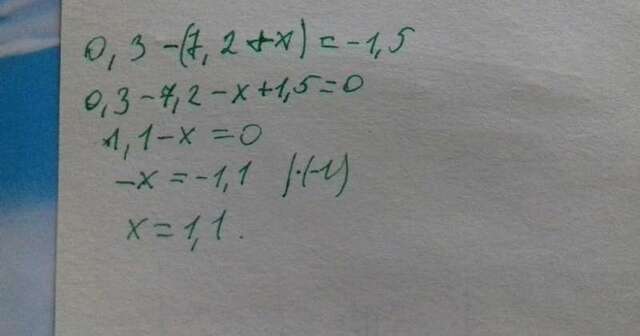 0,3-(7,2+x)=-1,5
0,3-7,2-x+1,5=0
1,1-x=0
-x=-1,1 |·(-1)
x=1,1.